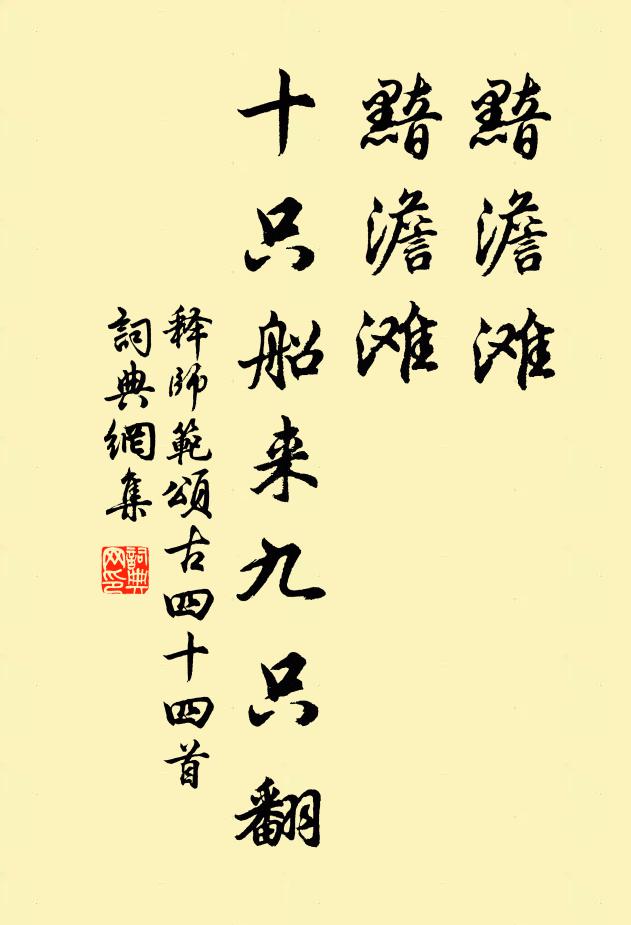 黯澹滩
黯澹滩
十只船来九只翻
释师範頌古四十四首
詞典網集
詞典网印